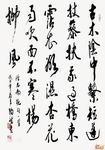 古木陰中繫短篷
杖藜扶我過橋東
沾衣欲濕杏花
雨吹面不寒楊
柳風